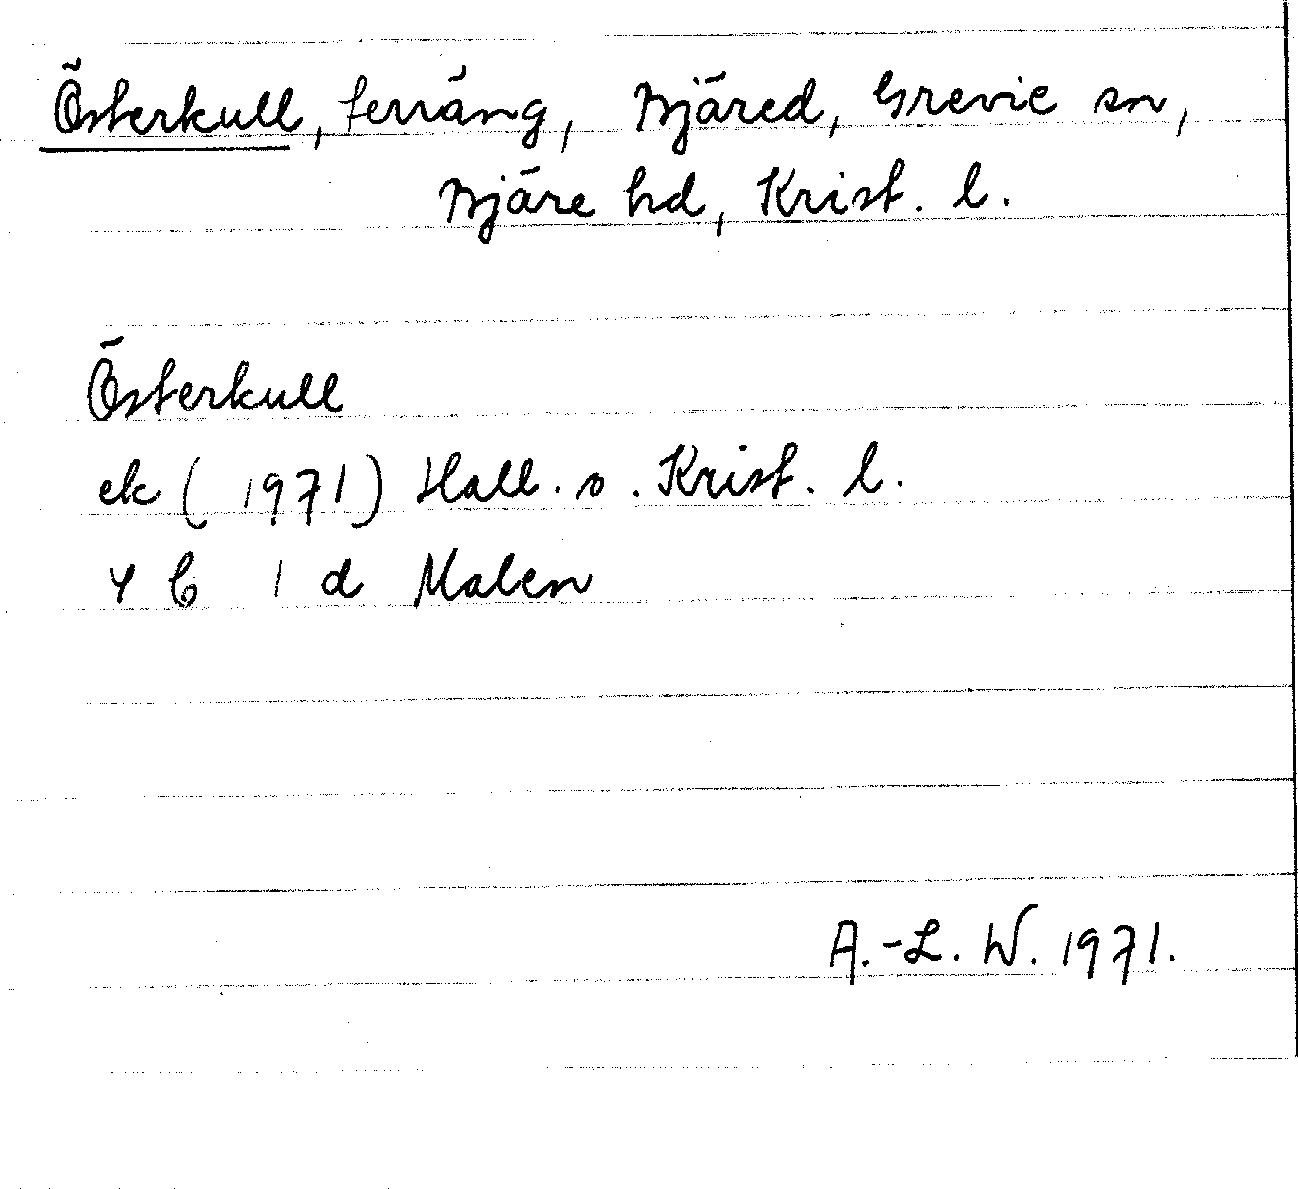 Österkull, terräng, Bjäred, Grevie sn,
Bjäre hd, Krist. l.
Österkull
ek (1971) Hall. o. Krist. l.
4 C 1 d Malen
A.-L. W. 1971.